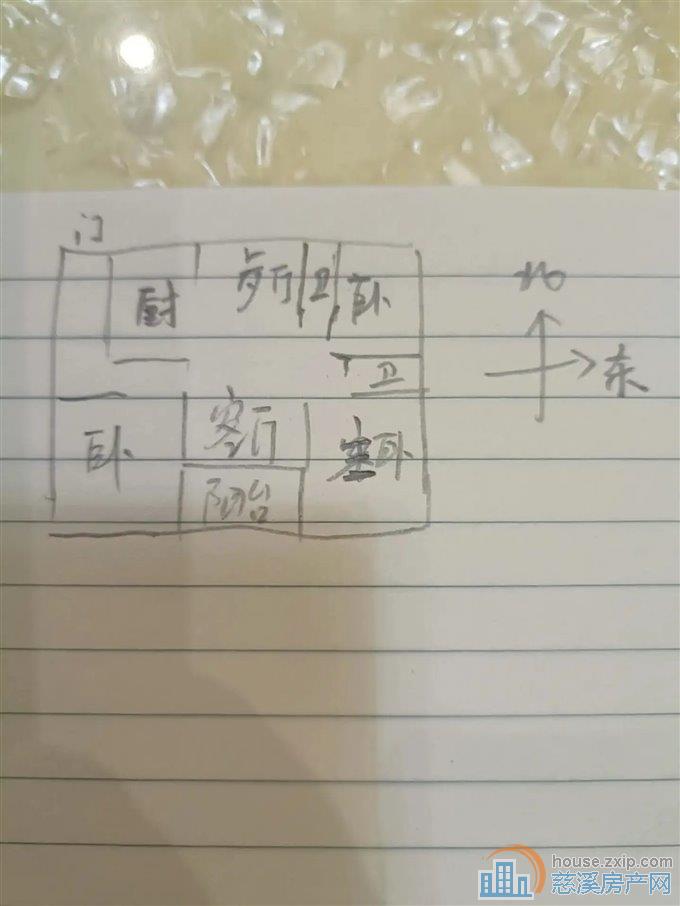 门
厨
餐厅
卫
卧
北
东
卫
卧
客厅
主卧
阳台
house.zxip.com
慈溪房产网